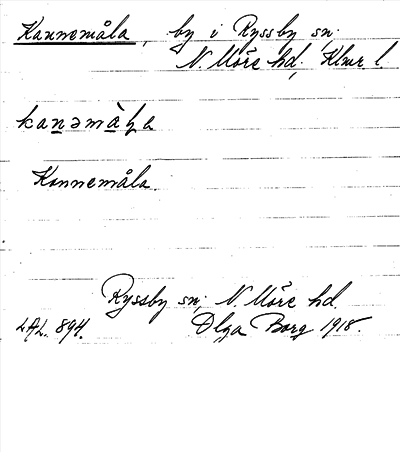 Kannemåla, by i Ryssby sn.
N. Möre hd, Klmr. l.
kanəmåla
Kannemåla.
Ryssby sn, N. Möre hd.
LAL. 894. Olga Borg 1918.